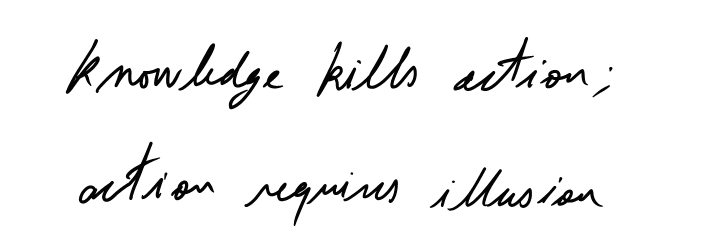 knowledge kills action;
action requires illusion